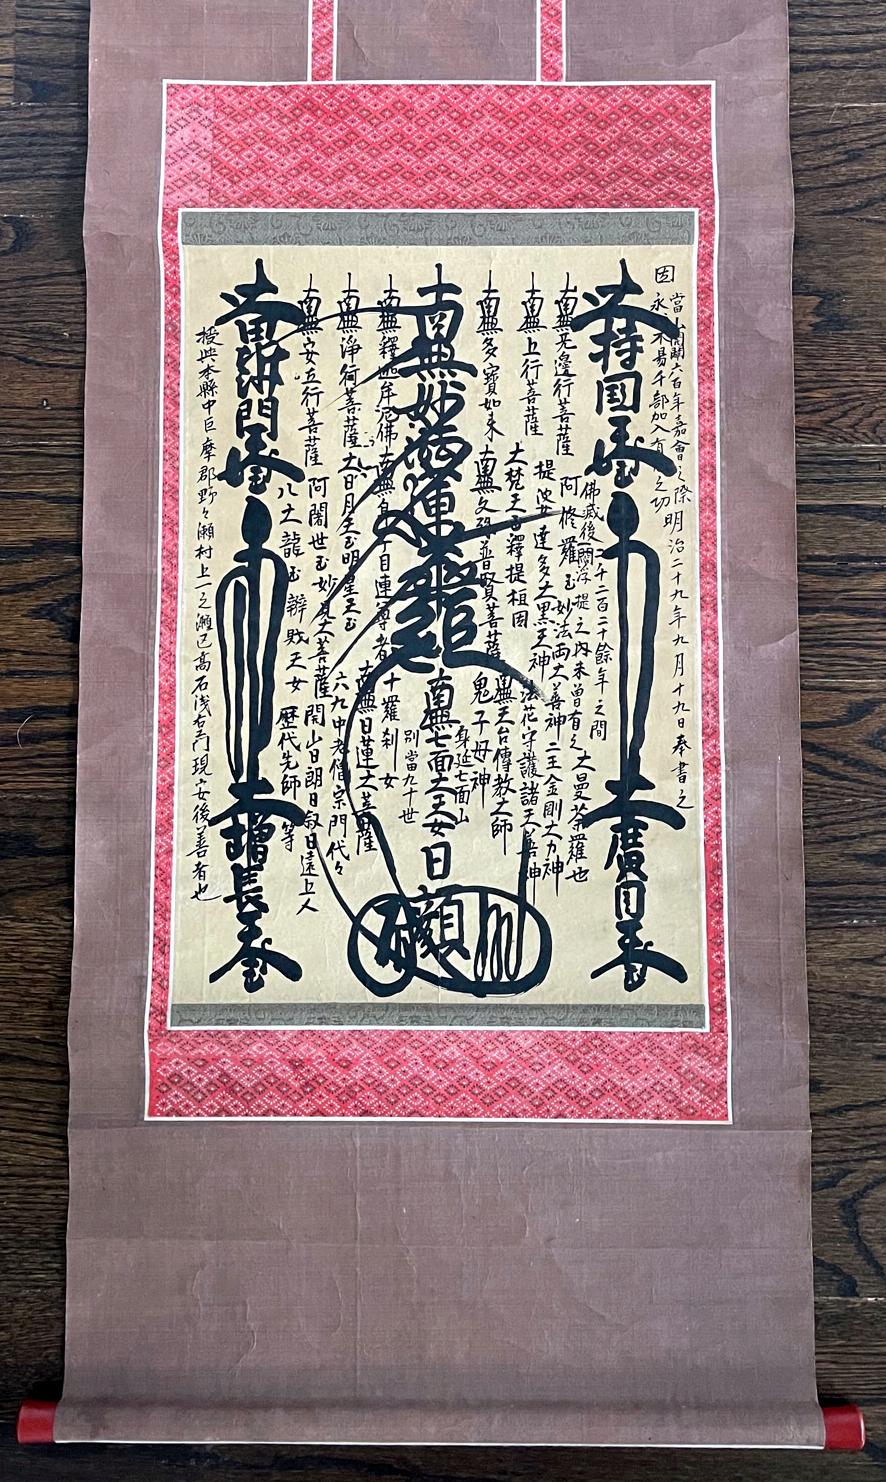 因
當山開闢六百年嘉會之際
明治二十九年九月十九日奉書之
永 不易千部加入有 之功
大持国天王
大廣目天王
佛滅後二千二百二十餘年之間
一閻浮提之内未曾有之大曼荼羅也
南無无邊行菩薩
阿修羅王 妙法両大善神 二王金剛大力神
南無上行菩薩
提婆達多 大黒天神 法花守護諸天善神
大梵天王 釋提桓因
南無多寶如来
南無文殊普賢菩薩
鬼子母神
南無天台傳教大師
南無妙法蓮華経
南無七面大天女
身延七面山
別當九十世
日顔
南無釋迦牟尼佛
南無身子目連尊者
十羅刹女
南無日蓮大菩薩
南無淨行菩薩
大日月天王明星天王
六九中老僧宗門代々
南無安立行菩薩
阿闍世王 妙見大菩薩 開山日朗日叙日遠上人
八大龍王 辯財天女 歴代先師等
大毘沙門天王
大増長天王
授与本縣中巨摩郡野々瀬村上一之瀬 現安後善者也